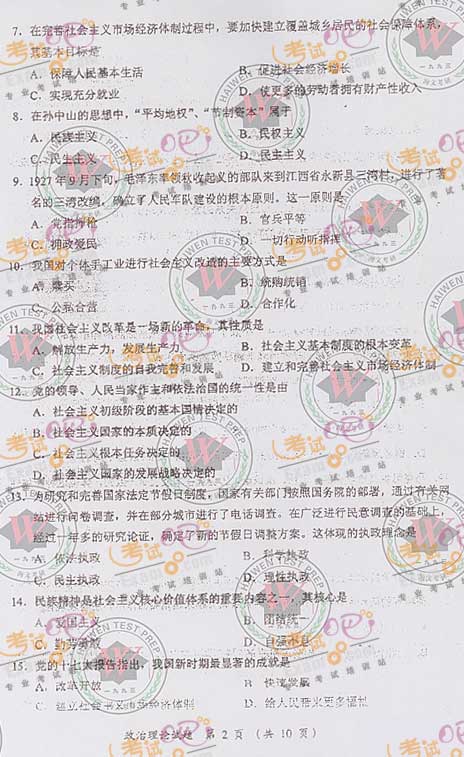 7. 在完善社会主义市场经济体制过程中，要加快建立覆盖城乡居民的社会保障体系，
其基本目标是
A. 保障人民基本生活 B. 促进社会经济增长
C. 实现充分就业 D. 使更多的劳动者拥有财产性收入
8. 在孙中山的思想中，“平均地权”、“节制资本”属于
A. 民族主义 B. 民权主义
C. 民生主义 D. 民主主义
9. 1927年9月下旬，毛泽东率领秋收起义的部队来到江西省永新县三湾村，进行了著
名的三湾改编，确立了人民军队建设的根本原则。这一原则是
A. 党指挥枪 B. 官兵平等
C. 拥政爱民 D. 一切行动听指挥
10. 我国对个体手工业进行社会主义改造的主要方式是
A. 赎买 B. 统筹统销
C. 公私合营 D. 合作化
11. 我国社会主义改革是一场新的革命，其性质是
A. 解放生产力，发展生产力 B. 社会主义基本制度的根本变革
C. 社会主义制度的自我完善和发展 D. 建立和完善社会主义市场经济体制
12. 党的领导、人民当家作主和依法治国的统一性是由
A. 社会主义初级阶段的基本国情决定的
B. 社会主义国家的本质决定的
C. 社会主义根本任务决定的
D. 社会主义国家的发展战略决定的
13. 为研究和完善国家法定节假日制度，国家有关部门按照国务院的部署，通过有关网
站进行问卷调查，并在部分城市进行了电话调查。在广泛进行民意调查的基础上，
经过一年多的研究论证，确定了新的节假日调整方案。这体现的执政理念是
A. 依法执政 B. 科学执政
C. 民主执政 D. 理性执政
14. 民族精神是社会主义核心价值体系的重要内容之一，其核心是
A. 爱国主义 B. 团结统一
C. 勤劳勇敢 D. 自强不息
15. 党的十七大报告指出，我国新时期最显著的成就是
A. 改革开放 B. 快速发展
C. 建立社会主义市场经济体制 D. 给人民带来更多福祉
政治理论试题 第 2 页 （共 10 页）